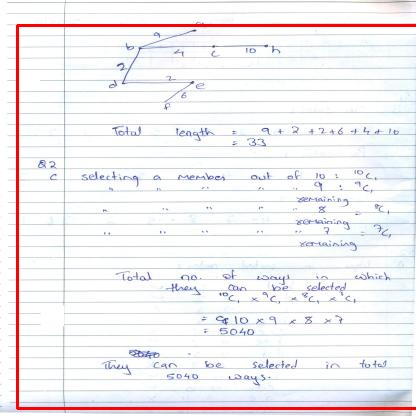 9
b 4 c 10 h
2
d 2 e
6
f
Total length = 9 + 2 + 2 + 6 + 4 + 10
= 33
Q2
c selecting a member out of 10 : ¹⁰C₁
" " " " " 9 : ⁹C₁
remaining
" " " " " 8 = ⁸C₁
remaining
" " " " " 7 = ⁷C₁
remaining
Total no. of ways in which
they can be selected
¹⁰C₁ × ⁹C₁ × ⁸C₁ × ⁷C₁
= 10 × 9 × 8 × 7
= 5040
They can be selected in total
5040 ways.